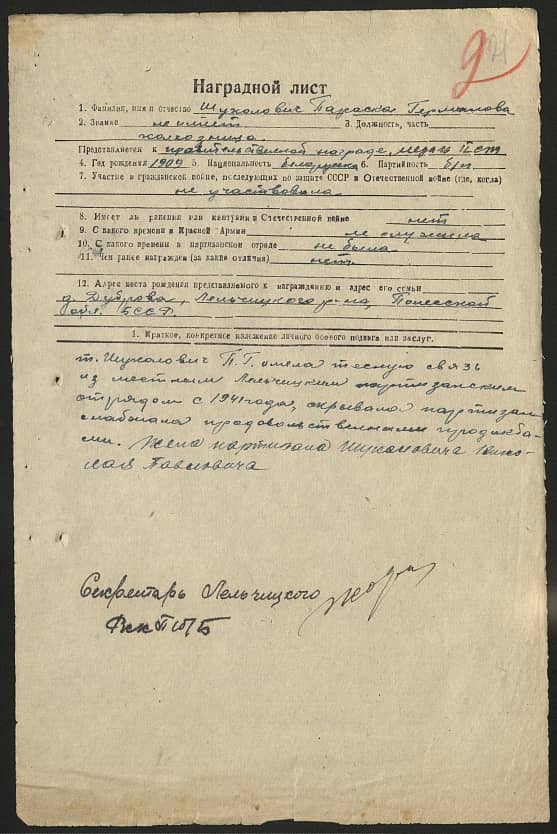 9
Наградной лист
1. Фамилия, имя и отчество Шуколович Параска Германовна
2. Звание не имеет 3. Должность, часть
колхозница
Представляется к правительственной награде, медаль
4. Год рождения 1909 5. Национальность белоруска 6. Партийность б/п
7. Участие в гражданской войне, последующих по защите СССР и Отечественной войне (где, когда)
не участвовала
8. Имеет ли ранения или контузии в Отечественной войне нет
9. С какого времени в Красной Армии не служила
10. С какого времени в партизанском отряде не была
11. Чем ранее награжден (за какие отличия) нет
12. Адрес места рождения представляемого к награждению и адрес его семьи
д. Дуброва, Лельчицкого р-на, Полесской
обл. БССР.
1. Краткое, конкретное изложение личного боевого подвига или заслуг.
т. Шуколович П.Г. имела тесную связь
из местным Лельчицким партизанским
отрядом с 1941 года, скрывала партизан,
снабжала продовольственными
ми. Жена партизана Шуколовича Нико-
лая Павловича
Секретарь Лельчицкого
РК КП(б)Б